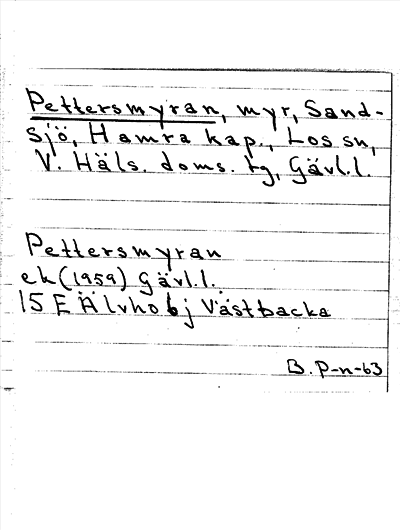 Pettersmyran, myr, Sand-
sjö, Hamra kap., Los sn,
V. Häls. doms. tg, Gävl.l.
Pettersmyran
ek (1959) Gävl.l.
15 E Älvho bj Västbacka
B. P-n-63